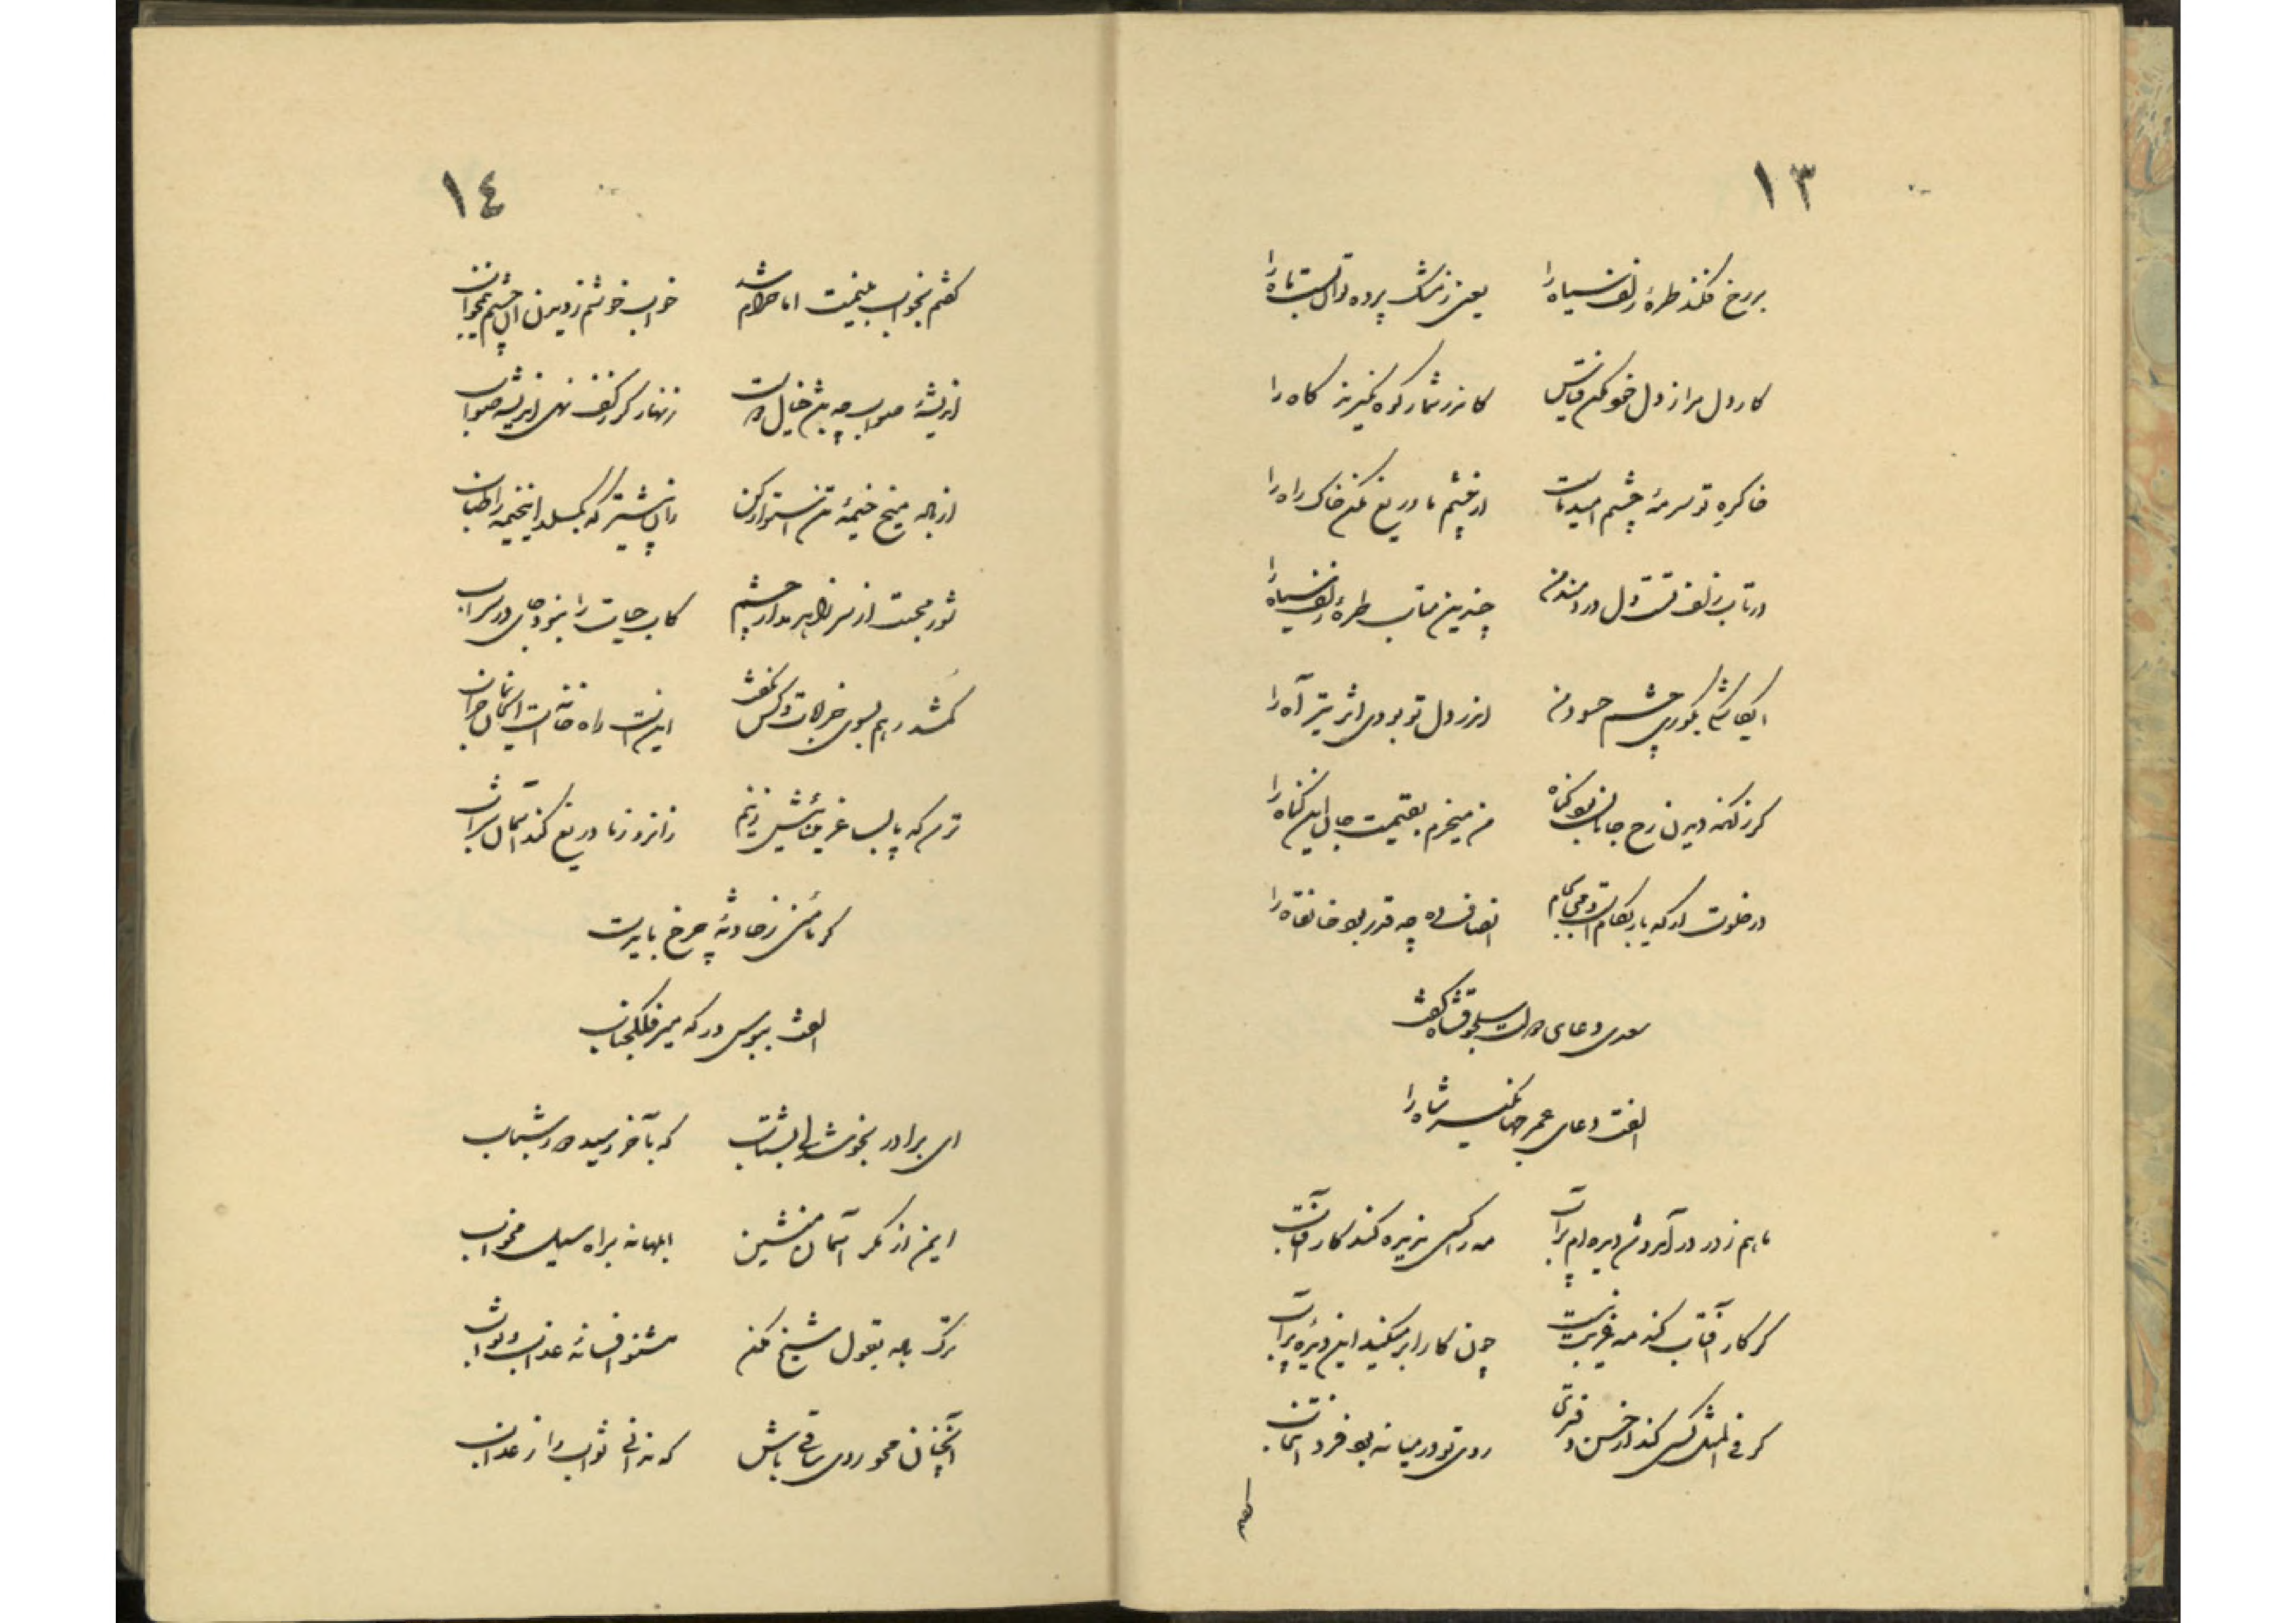 ١٣
بر رخ فکند طرهٔ زلف سیاه را یعنی ز مشک پرده توان بست ماه را
کار دل مرا ز دل خود مکن قیاس کاندر شمار کوه نگیرند کاه را
خاک ره تو سرمهٔ چشم امید ماست از چشم ما دریغ مکن خاک راه را
در تاب زلف تست دل دردمند من چندین متاب طرهٔ زلف سیاه را
ایکاش بکوری چشم حسود من اندر دل تو بودی اثر تیر آه را
گر زنکه دیدن رخ جانان بود گناه من میخرم بقیمت جان این گناه را
در خلوتی که یار بکامست و می بجام انصاف ده چه قدر بود خانقاه را
سعدی دعای دولت سلجوقشاه گفت
الفت دعای عمر جهانگیر شاه را
ماهم ز در درآمد و شد دیده‌ام پر آب مه را کسی ندیده کند کار آفتاب
گر کار آفتاب کند مه غریب نیست چون کار ابر میکند این دیدهٔ پر آب
گر فی المثل کسی کند از حسن دفتری روی تو در میانه بود فرد انتخاب
١٤
گفتم بخواب بینمت اما حرام شد خواب خوشم ز دیدن آن چشم نیمخواب
اندیشهٔ صواب چه پیش خیال دوست زنهار گر ز کف ندهی اندیشهٔ صواب
از ناله میخ خیمهٔ تن استوار کن زان پیشتر که بگسلد این خیمه را طناب
نور محبت از سر زاهد مدار چشم کاب حیات را نبود جای در سراب
گمشد رهم بسوی خرابات و کس نگفت این است راه خانهٔ آن خانمان خراب
ترسم که پا بساغر عیشش زنیم زانرو ز ما دریغ کند آسمان شراب
گر مأمنی ز حادثهٔ چرخ بایدت
الفت ببوس درگه میر فلک جناب
ای برادر بخوشدلی بشتاب که بآخر رسید دور شباب
ایمن از مکر آسمان منشین ابلهانه براه سیل مخواب
ترک باده بقول شیخ مکن مشنو افسانهٔ عذاب و ثواب
آنچنان محو روی ساقی باش که ندانی ثواب را ز عذاب